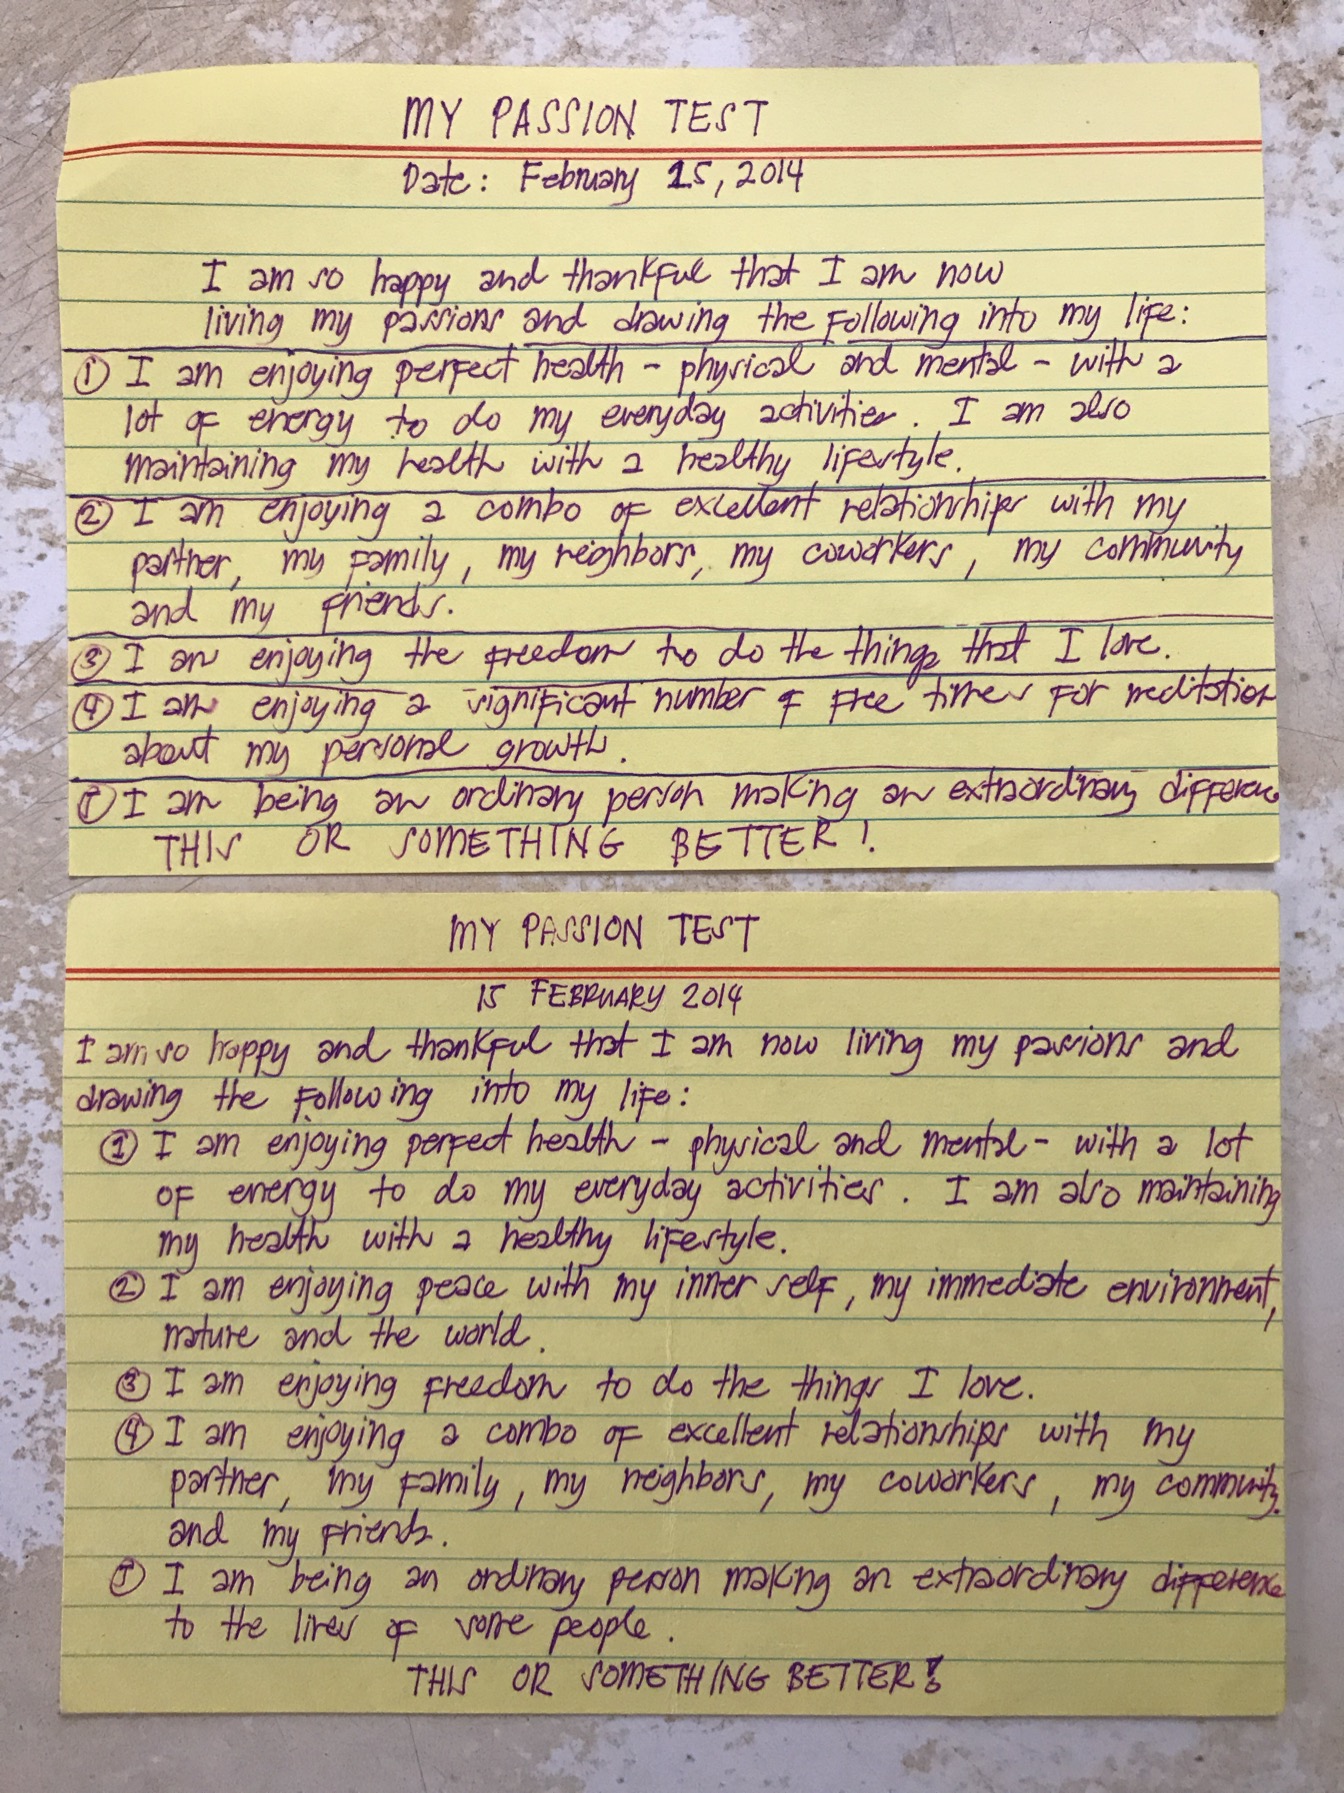 MY PASSION TEST
Date: February 15, 2014
I am so happy and thankful that I am now
living my passions and drawing the following into my life:
① I am enjoying perfect health - physical and mental - with a
lot of energy to do my everyday activities. I am also
maintaining my health with a healthy lifestyle.
② I am enjoying a combo of excellent relationships with my
partner, my family, my neighbors, my coworkers, my community
and my friends.
③ I am enjoying the freedom to do the things that I love.
④ I am enjoying a significant number of free times for meditation
about my personal growth.
⑤ I am being an ordinary person making an extraordinary difference
THIS OR SOMETHING BETTER!
MY PASSION TEST
15 FEBRUARY 2014
I am so happy and thankful that I am now living my passions and
drawing the following into my life:
① I am enjoying perfect health - physical and mental - with a lot
of energy to do my everyday activities. I am also maintaining
my health with a healthy lifestyle.
② I am enjoying peace with my inner self, my immediate environment,
nature and the world.
③ I am enjoying freedom to do the things I love.
④ I am enjoying a combo of excellent relationships with my
partner, my family, my neighbors, my coworkers, my community
and my friends.
⑤ I am being an ordinary person making an extraordinary difference
to the lives of some people.
THIS OR SOMETHING BETTER!